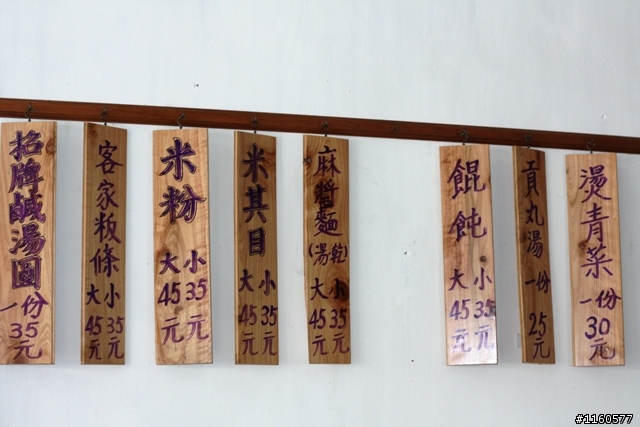 招牌鹹湯圓
一份
35
元
客家粄條
大 小
45 35
元 元
米粉
大 小
45 35
元 元
米其目
大 小
45 35
元 元
麻醬麵
(湯乾)
大 小
45 35
元 元
餛飩
大 小
45 35
元 元
貢丸湯
一份
25
元
燙青菜
一份
30
元
#1160577